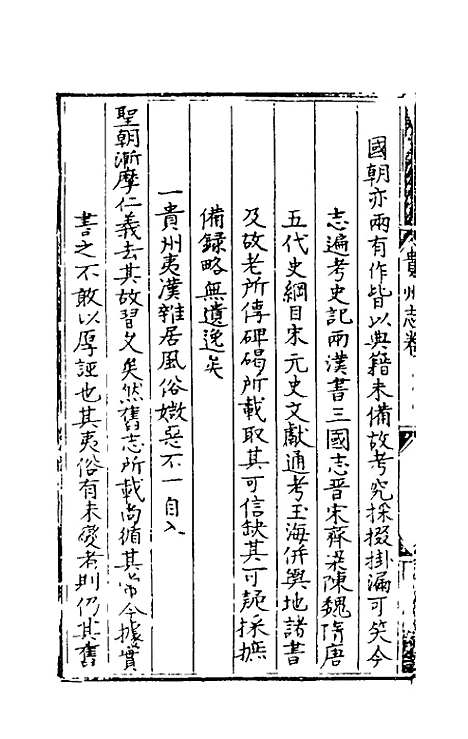 貴州志卷
國朝亦兩有作皆以典籍未備故考究採掇掛漏可笑今
志遍考史記兩漢書三國志晉宋齊梁陳魏隋唐
五代史綱目宋元史文獻通考玉海併輿地諸書
及故老所傳碑碣所載取其可信缺其可疑採摭
備録略無遺逸矣
一貴州夷漢雜居風俗媺惡不一自入
聖朝漸摩仁義去其故習久矣然舊志所載尚循其常今據實
書之不敢以厚誣也其夷俗有未變者則仍其舊